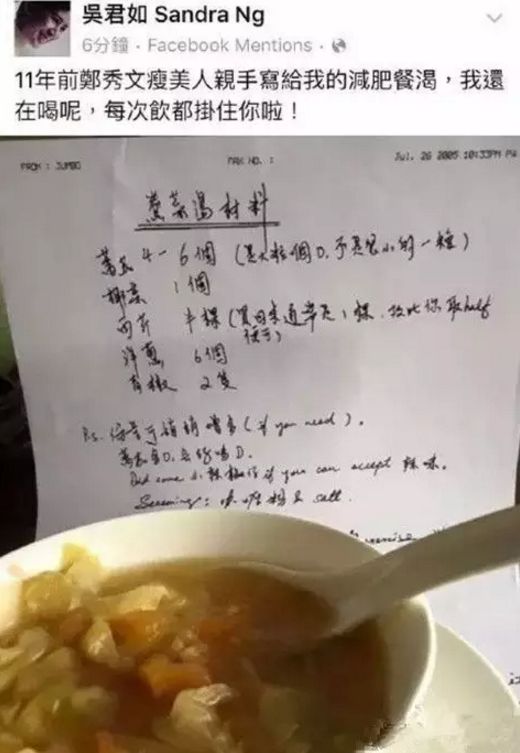 吳君如 Sandra Ng
6分鐘 · Facebook Mentions ·
11年前鄭秀文瘦美人親手寫給我的減肥餐湯，我還
在喝呢，每次飲都掛住你啦！
FROM : JUMBO FAX NO. : Jul. 26 2005 10:33PM P1
蕃茄湯材料
蕃茄 4-6個 (買大粒個D，不是思小的一種)
椰菜 1個
西芹 半棵 (買回來通常是1棵，故此你取half
便可)
洋蔥 6個
青椒 2隻
Ps. 你是可稍稍增多 (if you need).
蕃茄多D，會好喝D.
Did come 小辣椒仔 if you can accept 辣味.
Seasoning: 胡椒粉及 salt.